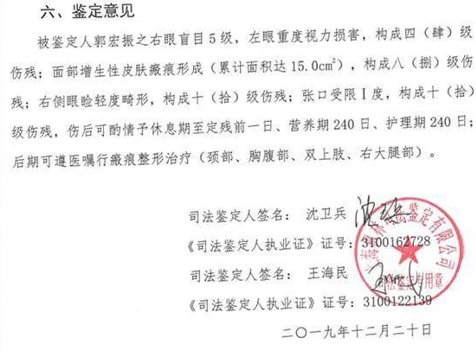 六、鉴定意见
被鉴定人郭宏振之右眼盲目5级，左眼重度视力损害，构成四（肆）级
伤残；面部增生性皮肤瘢痕形成（累计面积达15.0cm²），构成八（捌）级伤
残；右侧眼睑轻度畸形，构成十（拾）级伤残；张口受限Ⅰ度，构成十（拾）
级伤残，伤后可酌情予休息期至定残前一日、营养期240日、护理期240日；
后期可遵医嘱行瘢痕整形治疗（颈部、胸腹部、双上肢、右大腿部）。
司法鉴定人签名： 沈卫兵
《司法鉴定人执业证》证号：3100162728
司法鉴定人签名： 王海民
《司法鉴定人执业证》证号：3100122139
二〇一九年十二月二十日